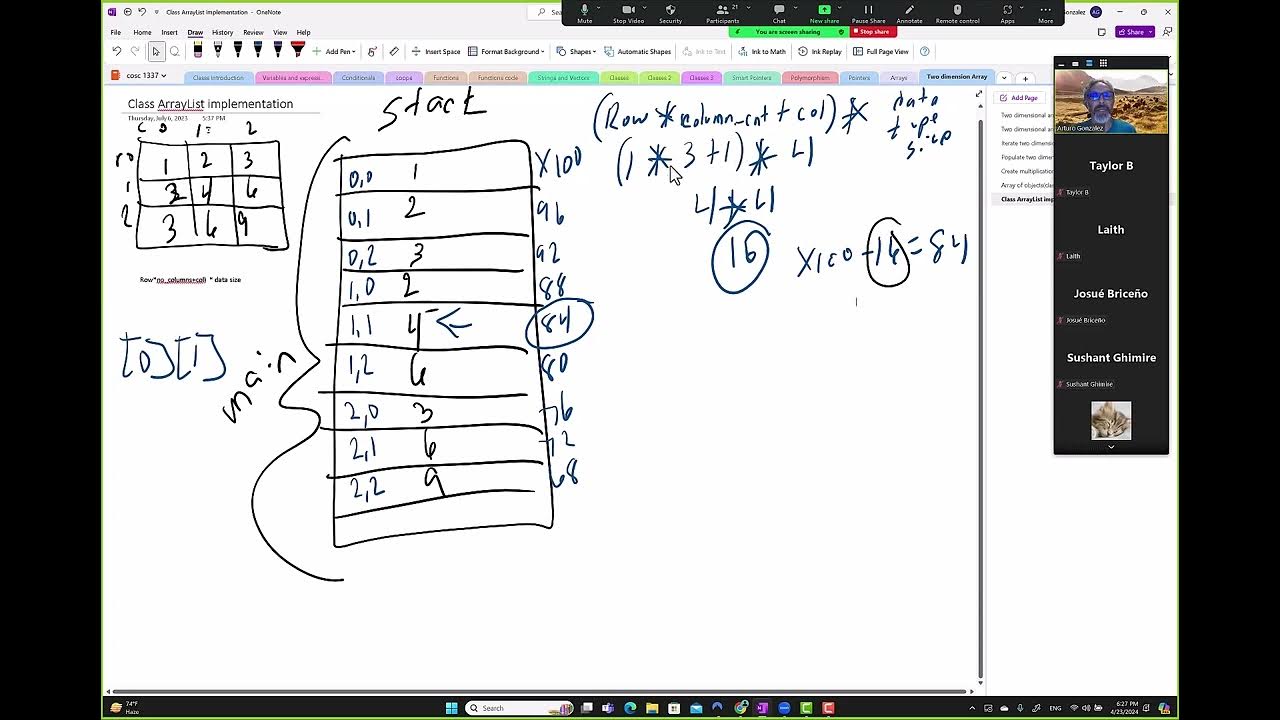 Class ArrayList implementation - OneNote
Gonzalez AG
Mute
Stop Video
Security
Participants 21
Chat
New share
Pause Share
Annotate
Remote control
Apps
More
You are screen sharing
Stop share
File Home Insert Draw History Review View Help
Share
Add Pen
Insert Space
Format Background
Shapes
Automatic Shapes
Ink to Text
Ink to Math
Ink Replay
Full Page View
cosc 1337
Conditionals
loops
Functions
Functions code
Strings and Vectors
Classes
Classes 2
Classes 3
Smart Pointers
Polymorphism
Pointers
Arrays
Two dimension Array
Add Page
Class ArrayList implementation
Thursday, July 6, 2023 5:37 PM
C 0 1 2
r0 1 2 3
1 2 4 6
2 3 6 9
Row*no_columns+col * data size
[0][1]
main
stack
0,0 1 x100
0,1 2 96
0,2 3 92
1,0 2 88
1,1 4 ← 84
1,2 6 80
2,0 3 76
2,1 6 72
2,2 9 68
(Row * column_cnt + col) * data type size
(1 * 3 + 1) * 4
4 * 4
16
x100 - 16 = 84
Two dimensional
Two dimensional
Iterate two dimension
Populate two dimensi
Create multiplication
Array of objects(clas
Class ArrayList impl
Arturo Gonzalez
Taylor B
Taylor B
Laith
Laith
Josué Briceño
Josué Briceño
Sushant Ghimire
Sushant Ghimire
74°F
Haze
Search
6:27 PM
4/23/2024